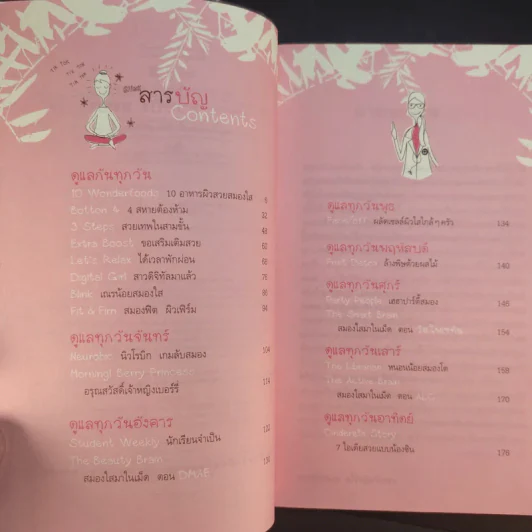 สารบัญ
Contents
ดูแลกันทุกวัน
10 Wonderfoods 10 อาหารผิวสวยสมองใส 6
Bottom 4 4 สหายต้องห้าม 32
3 Steps สวยเทพในสามขั้น 48
Extra Boost ขอเสริมเติมสวย 60
Let's Relax ได้เวลาพักผ่อน 68
Digital Girl สาวดิจิทัลมาแล้ว 78
Blink เณรน้อยสมองใส
Fit & Firm สมองฟิต ผิวเฟิร์ม 94
ดูแลทุกวันจันทร์
Neurobic นิวโรบิก เกมลับสมอง 104
Morning! Berry Princess
อรุณสวัสดิ์เจ้าหญิงเบอร์รี่ 114
ดูแลทุกวันอังคาร
Student Weekly นักเรียนจำเป็น 122
The Beauty Brain
สมองใสมาในเม็ด ตอน DMAE
ดูแลทุกวันพุธ
ผลัดเซลล์ผิวใสใกล้ๆ ครัว 134
ดูแลทุกวันพฤหัสบดี
ล้างพิษด้วยผลไม้ 140
ดูแลทุกวันศุกร์
Party People เฮฮาปาร์ตี้สมอง 148
The Smart Brain
สมองใสมาในเม็ด ตอน 154
ดูแลทุกวันเสาร์
หนอนน้อยสมองโต 158
The Active Brain
สมองใสมาในเม็ด ตอน 170
ดูแลทุกวันอาทิตย์
Story
7 ไอเดียสวยแบบน้องชิน 176